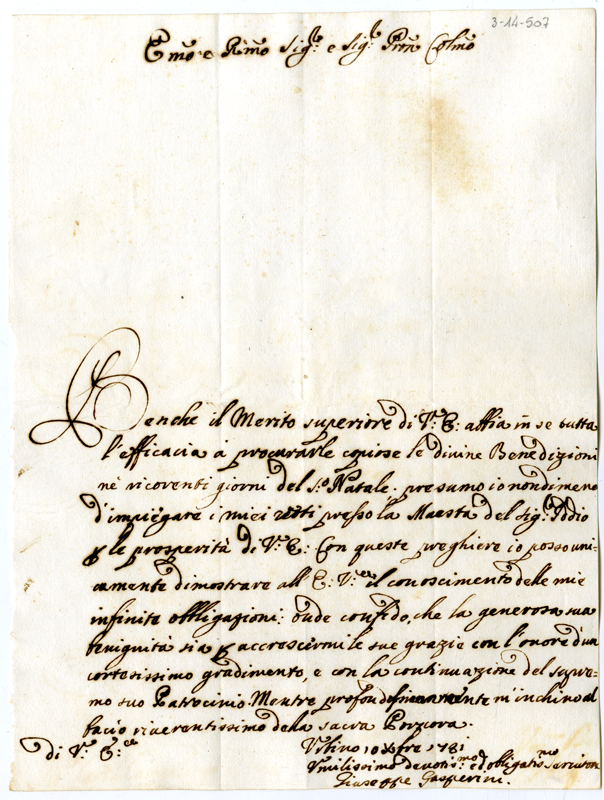 3-14-507
Emo e Rmo Sig.r e Sig.r Pron Colmo
Benche il Merito superiore di V.a E: abbia in se tutta
l'efficacia à procurarle copiose le divine Benedizioni
nè ricorenti giorni del S.o Natale. presumo io nondimeno
d'impiegare i miei voti presso la Maestà del Sig: Iddio
p le prosperità di V.a E: Con queste preghiere io posso uni-
camente dimostrare all'E: V.a il conoscimento delle mie
infinite obbligazioni: onde confido, che la generosa sua
benignità sia p accrescermi le sue grazie con l'onore d'un
cortesissimo gradimento, e con la continuazione del supre-
mo suo Patrocinio. Mentre profondissimamente m'inchino al
bacio riverentissimo della sacra Porpora.
di V.a E:
Urbino 10 Xbre 1781
Umilissimo devotis.mo ed obligatis.mo Servitore
Giuseppe Gasperini.